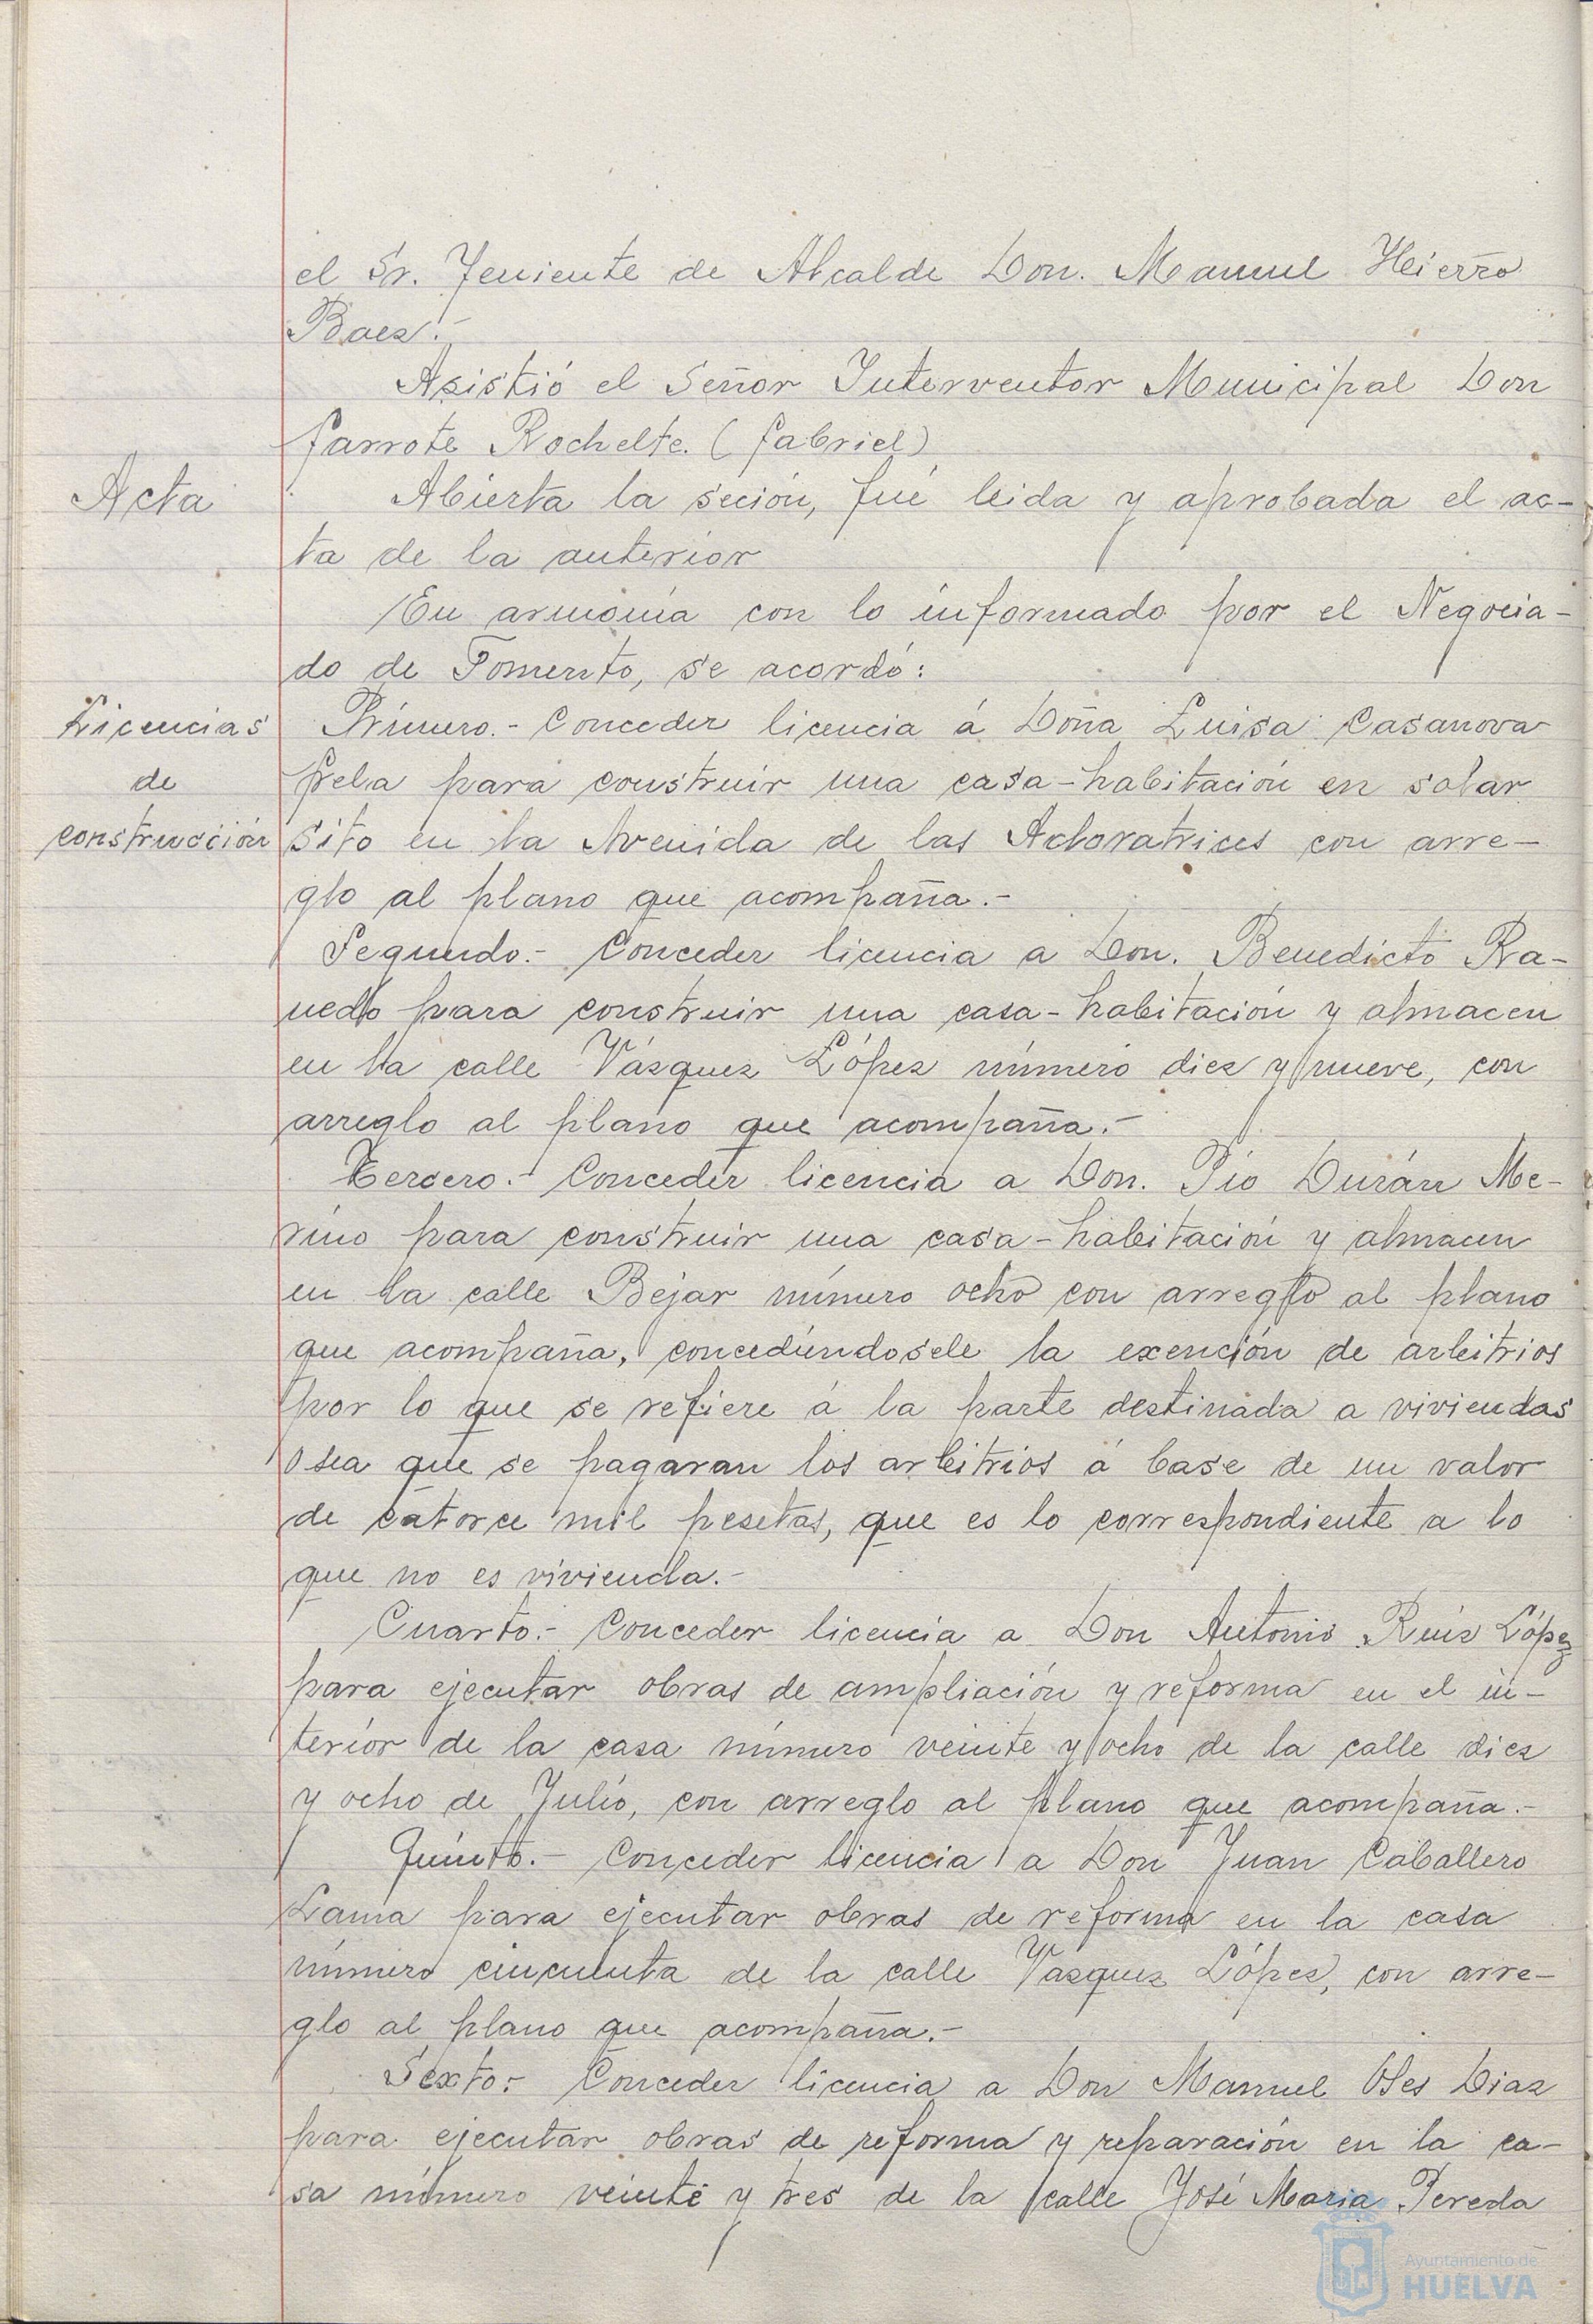 el Sr. Teniente de Alcalde Don. Manuel Hierro
Baez.-
Asistió el Señor Interventor Municipal Don
Garrote Rochelte. (Gabriel)
Acta
Abierta la seción, fué leida y aprobada el ac-
ta de la anterior
En armonia con lo informado por el Negocia-
do de Fomento, se acordó:
Licencias
de
construcción
Primero.- Conceder licencia á Doña Luisa Casanova
Gela para construir una casa-habitación en solar
sito en la Avenida de las Adoratrices con arre-
glo al plano que acompaña.-
Segundo.- Conceder licencia a Don. Benedicto Ra-
nedo para construir una casa-habitación y almacen
en la calle Vázquez López número diez y nueve, con
arreglo al plano que acompaña.-
Tercero.- Conceder licencia a Don. Pio Durán Me-
rino para construir una casa-habitación y almacen
en la calle Bejar número ocho con arreglo al plano
que acompaña, concediendosele la exención de arbitrios
por lo que se refiere á la parte destinada a viviendas
o sea que se pagaran los arbitrios á base de un valor
de catorce mil pesetas, que es lo correspondiente a lo
que no es vivienda.-
Cuarto.- Conceder licencia a Don Antonio Ruiz López
para ejecutar obras de ampliación y reforma en el in-
terior de la casa número veinte y ocho de la calle diez
y ocho de Julio, con arreglo al plano que acompaña.-
Quinto.- Conceder licencia a Don Juan Caballero
Lama para ejecutar obras de reforma en la casa
número cincuenta de la calle Vázquez López, con arre-
glo al plano que acompaña.-
Sexto.- Conceder licencia a Don Manuel Diaz
para ejecutar obras de reforma y reparación en la ca-
sa número veinte y tres de la calle José Maria Pereda
Ayuntamiento de
HUELVA